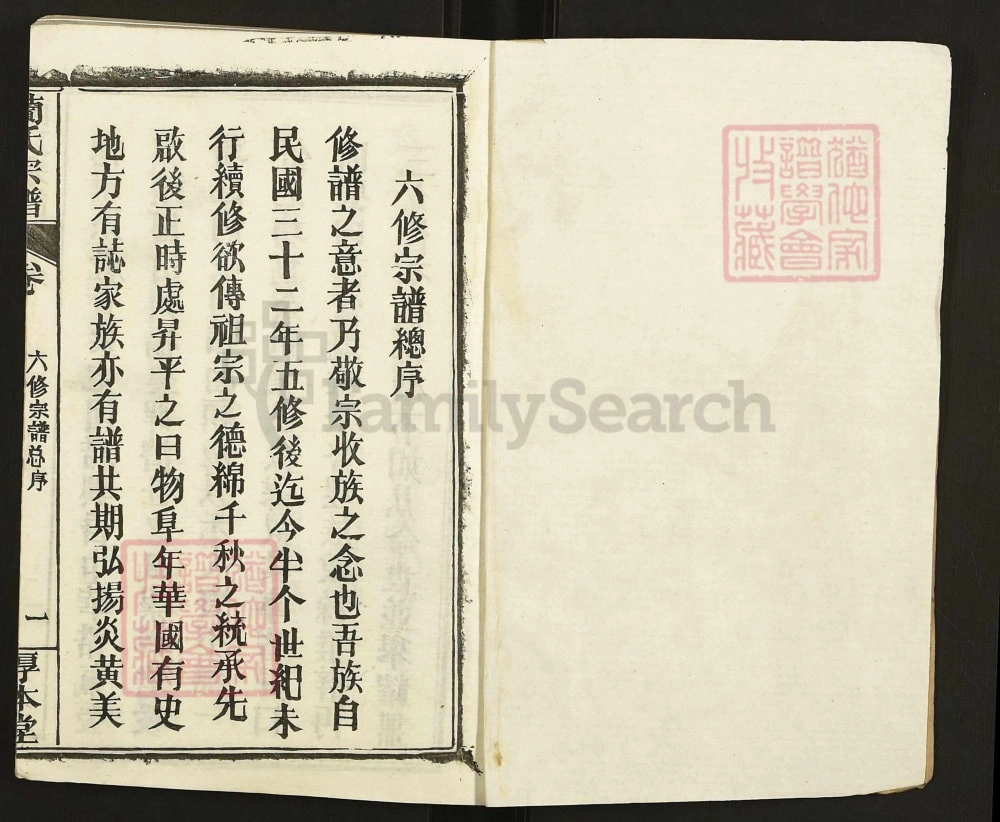 六修宗譜總序
修譜之意者乃敬宗收族之念也吾族自
民國三十二年五修後迄今半个世紀未
行續修欲傳祖宗之德綿千秋之統承先
啟後正時處昇平之日物阜年華國有史
地方有誌家族亦有譜共期弘揚炎黄美
氏宗譜
卷
六修宗譜总序
一
厚本堂
猶他家
譜學會
收藏
FamilySearch
猶他家
譜學會
收藏